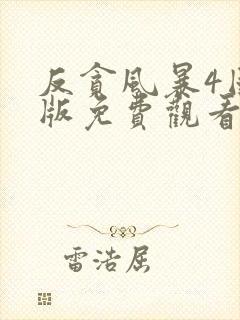 反貪風暴4
版免費觀看
雷浩屈